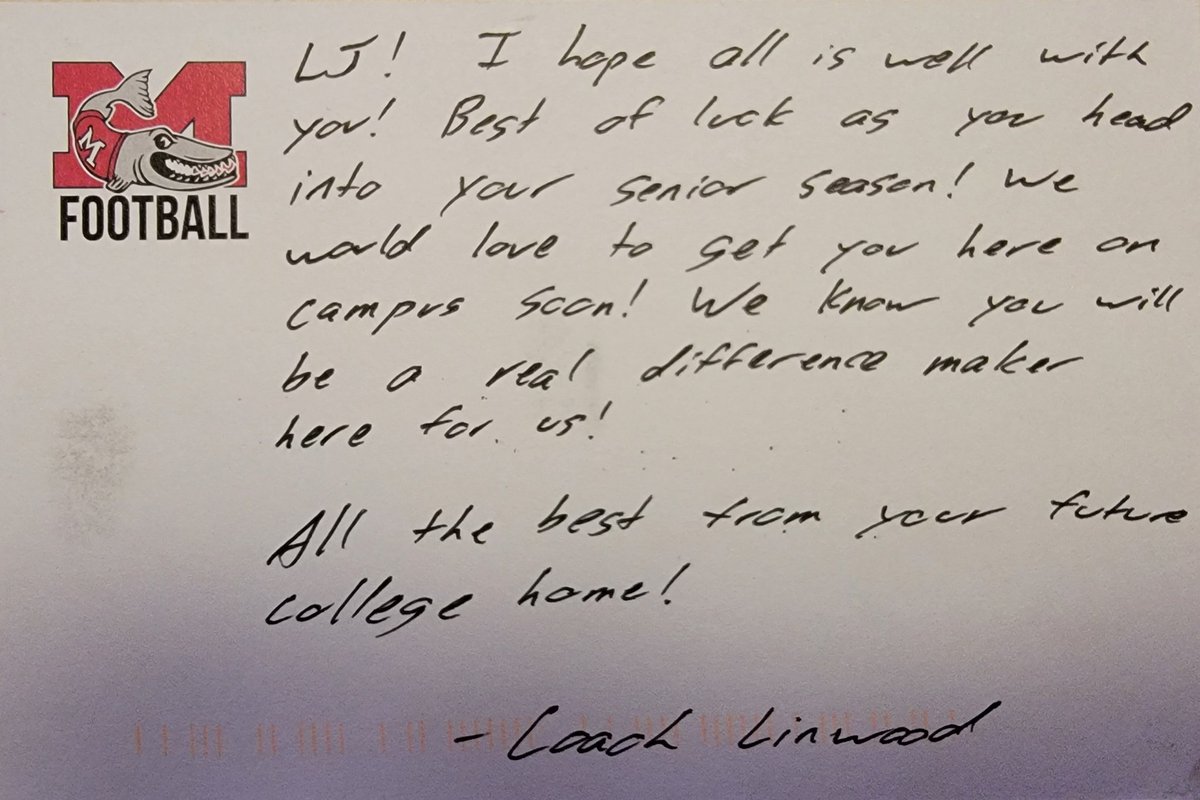 M
M
FOOTBALL
LJ! I hope all is well with
you! Best of luck as you head
into your senior season! We
would love to get you here on
campus soon! We know you will
be a real difference maker
here for us!
All the best from your future
college home!
- Coach Linwood